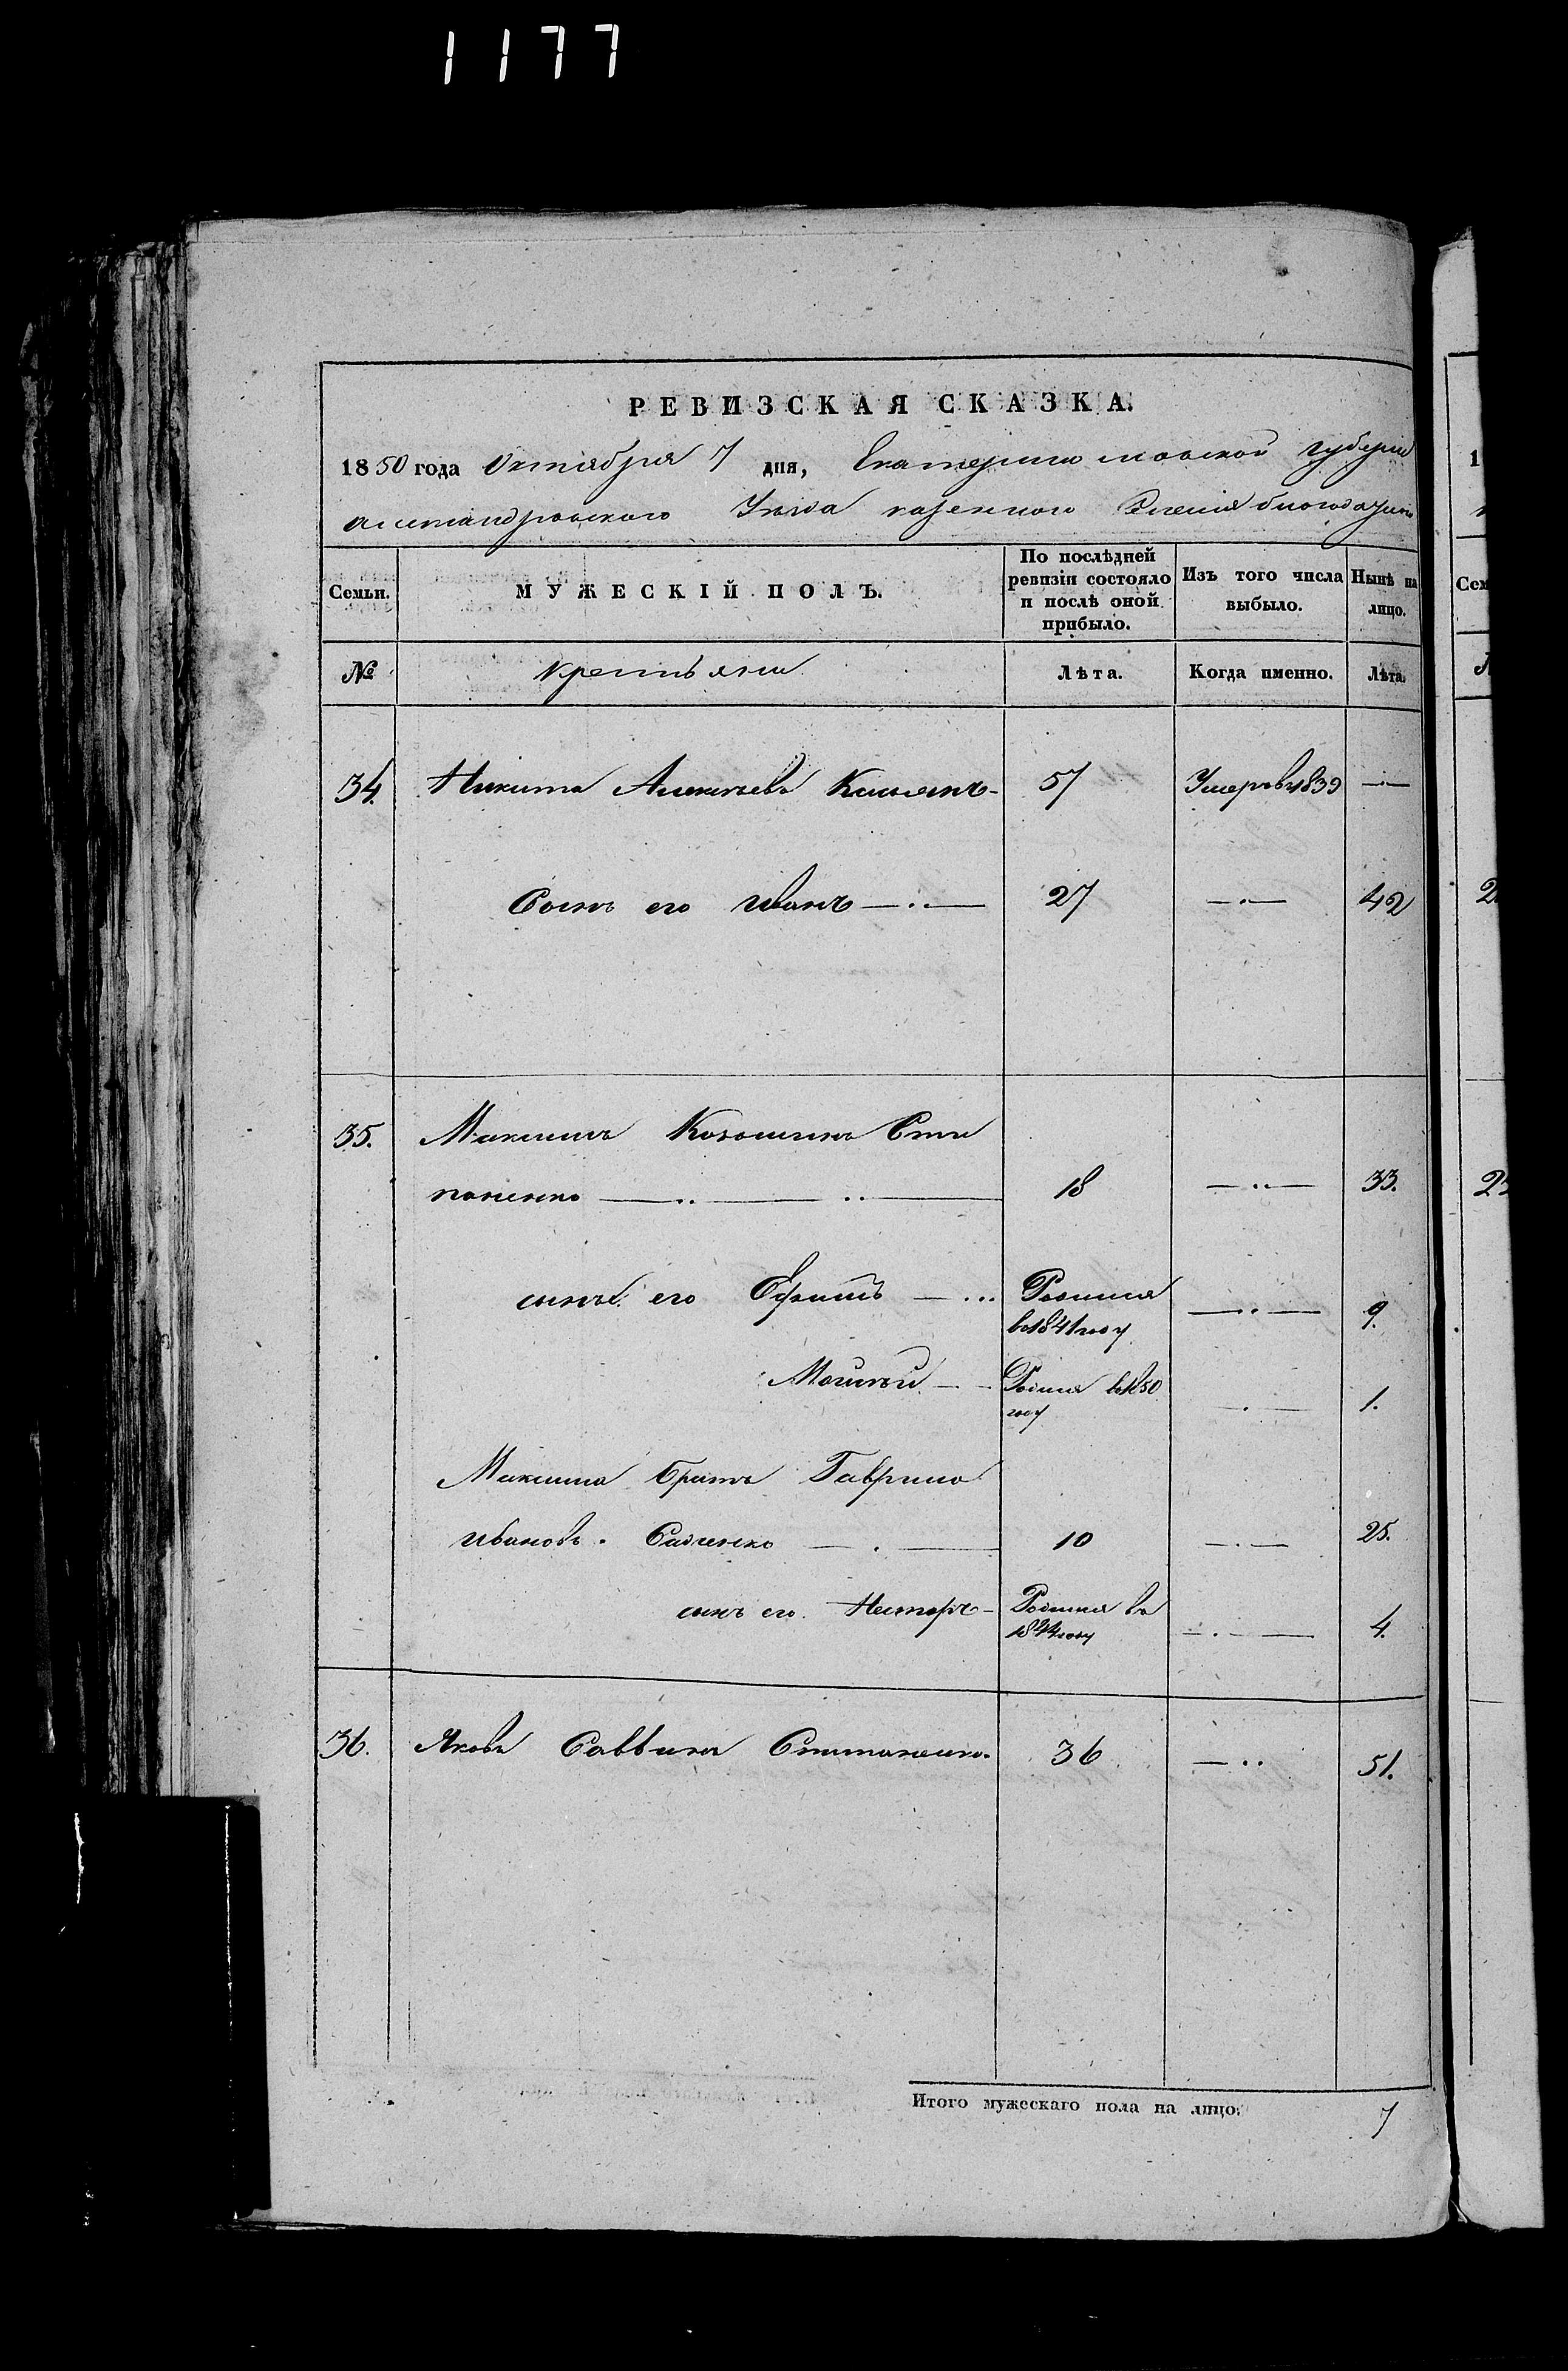 1177
РЕВИЗСКАЯ СКАЗКА.
1850 года Октября 7 дня, Екатеринославской губерніи
Александровского Уезда казенного Селенія благодатного
Семьи. МУЖЕСКІЙ ПОЛЪ. По послѣдней ревизіи состояло и послѣ оной прибыло. Изъ того числа выбыло. Нынѣ на лицо.
№ Крестьяне Лѣта. Когда именно. Лѣта.
34. Никита Алексѣевъ 57 Умеръ въ 1839 —
Сынъ его иванъ 27 — 42
35. Максимъ Сте
паненко 18 — 33.
сынъ его Ефимъ Родился въ 1841 году — 9.
Моисей Родился въ 1850 году — 1.
Максима братъ Гаврило
ивановъ 10 — 25.
сынъ его Несторъ Родился въ 1844 году — 4.
36. Яковъ Саввинъ 36 — 51.
Итого мужескаго пола на лицо. 7